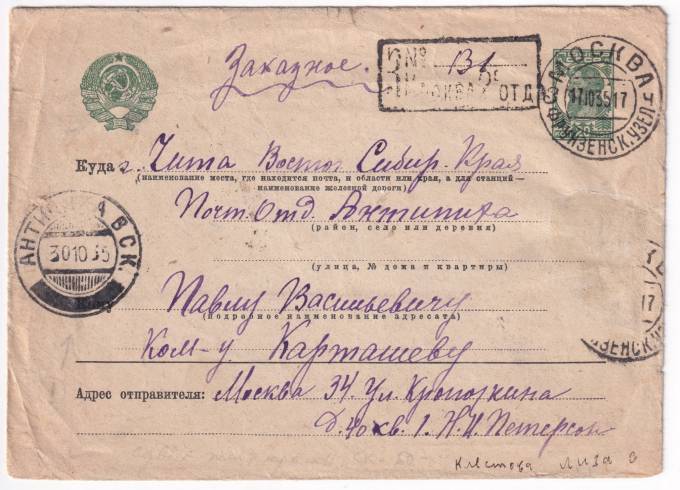 Заказное.
№ 131
МОСКВА ОТД
МОСКВА
17.10.35.17
ФРУНЗЕНСК.УЗЕЛ
Куда г. Чита Восточ Сибир. Края
(наименование места, где находится почта, и области или края, а для станций—
наименование железной дороги)
Почт. Отд. Антипиха
(район, село или деревня)
АНТИПИХА ВСК.
30 10 35
(улица, № дома и квартиры)
17
Павлу Васильевичу
(подробное наименование адресата)
Ком-у Карташеву
Адрес отправителя: Москва 34. Ул. Кропоткина
Д. 40 кв. 1. Н. И Петерсон
лиза